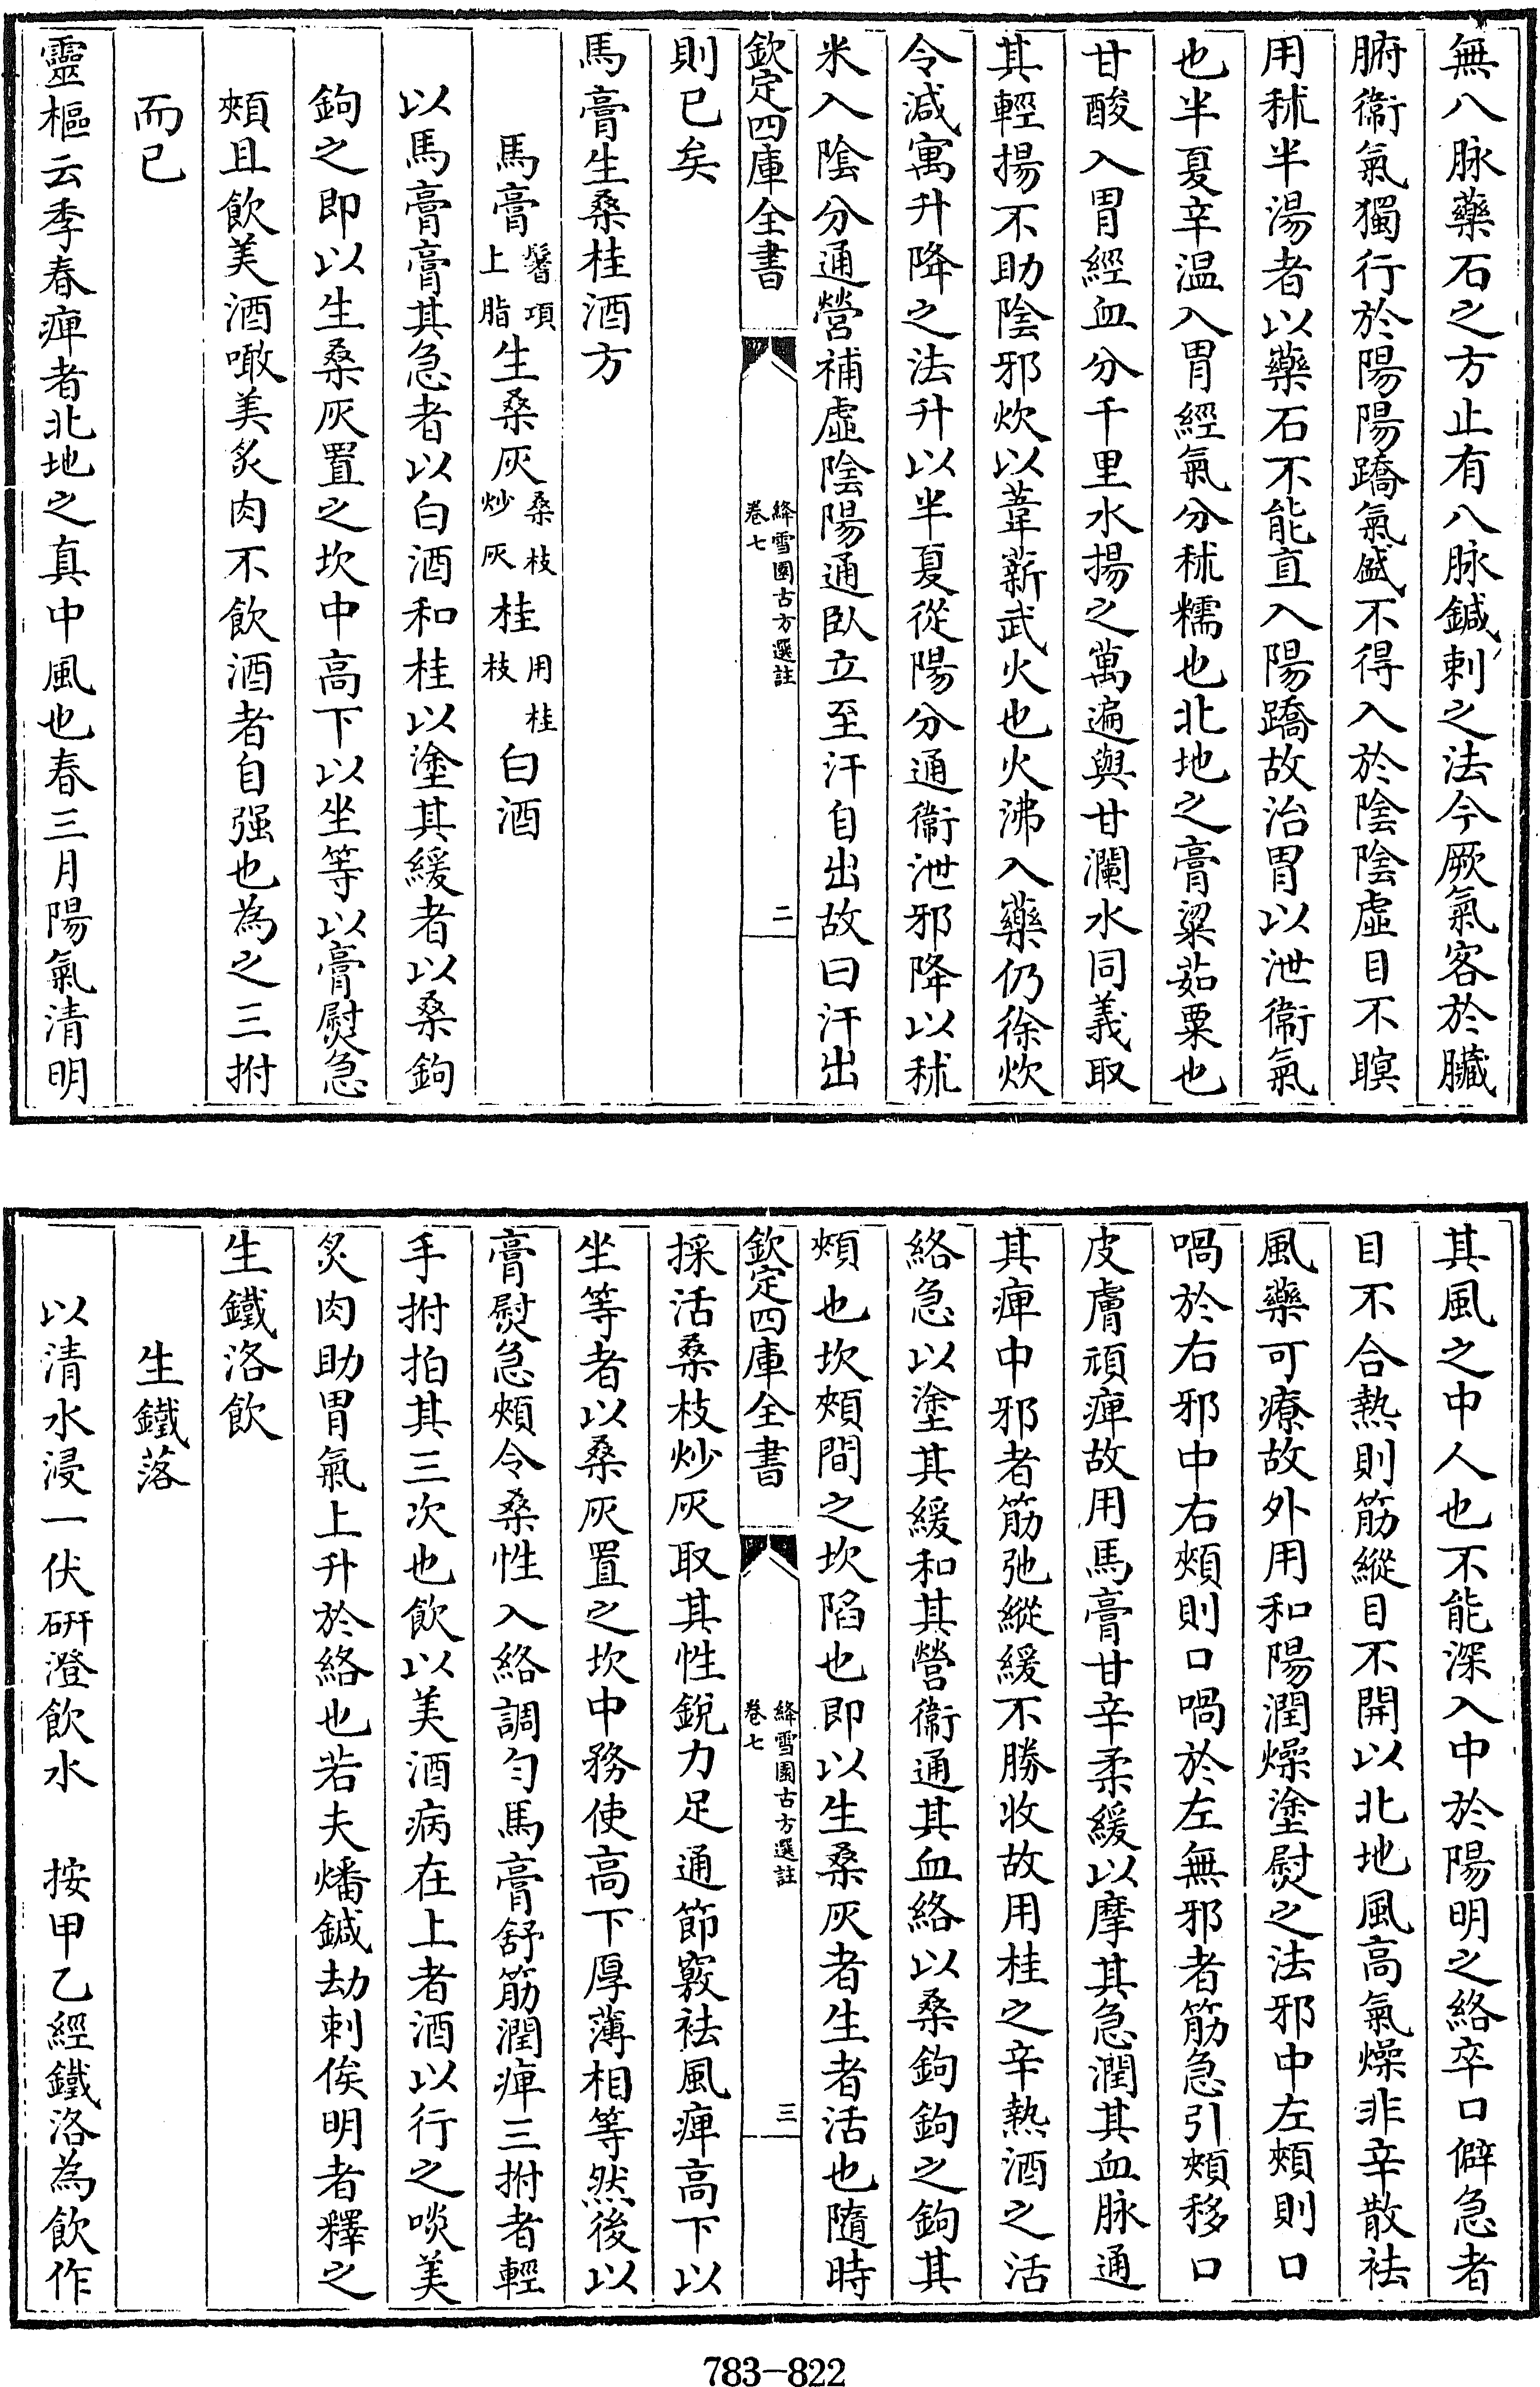 無八脉藥石之方止有八脉鍼刺之法今厥氣客於臟
腑衞氣獨行於陽陽蹻氣盛不得入於陰陰虛目不瞑
用秫半湯者以藥石不能直入陽蹻故治胃以泄衞氣
也半夏辛温入胃經氣分秫糯也北地之膏粱茹粟也
甘酸入胃經血分千里水揚之萬遍與甘瀾水同義取
其輕揚不助陰邪炊以葦薪武火也火沸入藥仍徐炊
令減寓升降之法升以半夏從陽分通衞泄邪降以秫
米入陰分通營補虛陰陽通臥立至汗自出故曰汗出
欽定四庫全書
絳雪園古方選註
卷七
二
則已矣
馬膏生桑桂酒方
馬膏鬐項上脂生桑灰桑枝炒灰桂用桂枝白酒
以馬膏膏其急者以白酒和桂以塗其緩者以桑鉤
鉤之即以生桑灰置之坎中高下以坐等以膏熨急
頰且飲美酒噉美炙肉不飲酒者自强也為之三拊
而已
靈樞云季春痺者北地之真中風也春三月陽氣清明
其風之中人也不能深入中於陽明之絡卒口僻急者
目不合熱則筋縱目不開以北地風高氣燥非辛散祛
風藥可療故外用和陽潤燥塗熨之法邪中左頰則口
喎於右邪中右頰則口喎於左無邪者筋急引頰移口
皮膚頑痺故用馬膏甘辛柔緩以摩其急潤其血脉通
其痺中邪者筋弛縱緩不勝收故用桂之辛熱酒之活
絡急以塗其緩和其營衞通其血絡以桑鉤鉤之鉤其
頰也坎頰間之坎陷也即以生桑灰者生者活也隨時
欽定四庫全書
絳雪園古方選註
卷七
三
採活桑枝炒灰取其性銳力足通節竅祛風痺高下以
坐等者以桑灰置之坎中務使高下厚薄相等然後以
膏熨急頰令桑性入絡調勻馬膏舒筋潤痺三拊者輕
手拊拍其三次也飲以美酒病在上者酒以行之啖美
炙肉助胃氣上升於絡也若夫燔鍼劫刺俟明者釋之
生鐵洛飲
生鐵落
以清水浸一伏研澄飲水　按甲乙經鐵洛為飲作
783-822